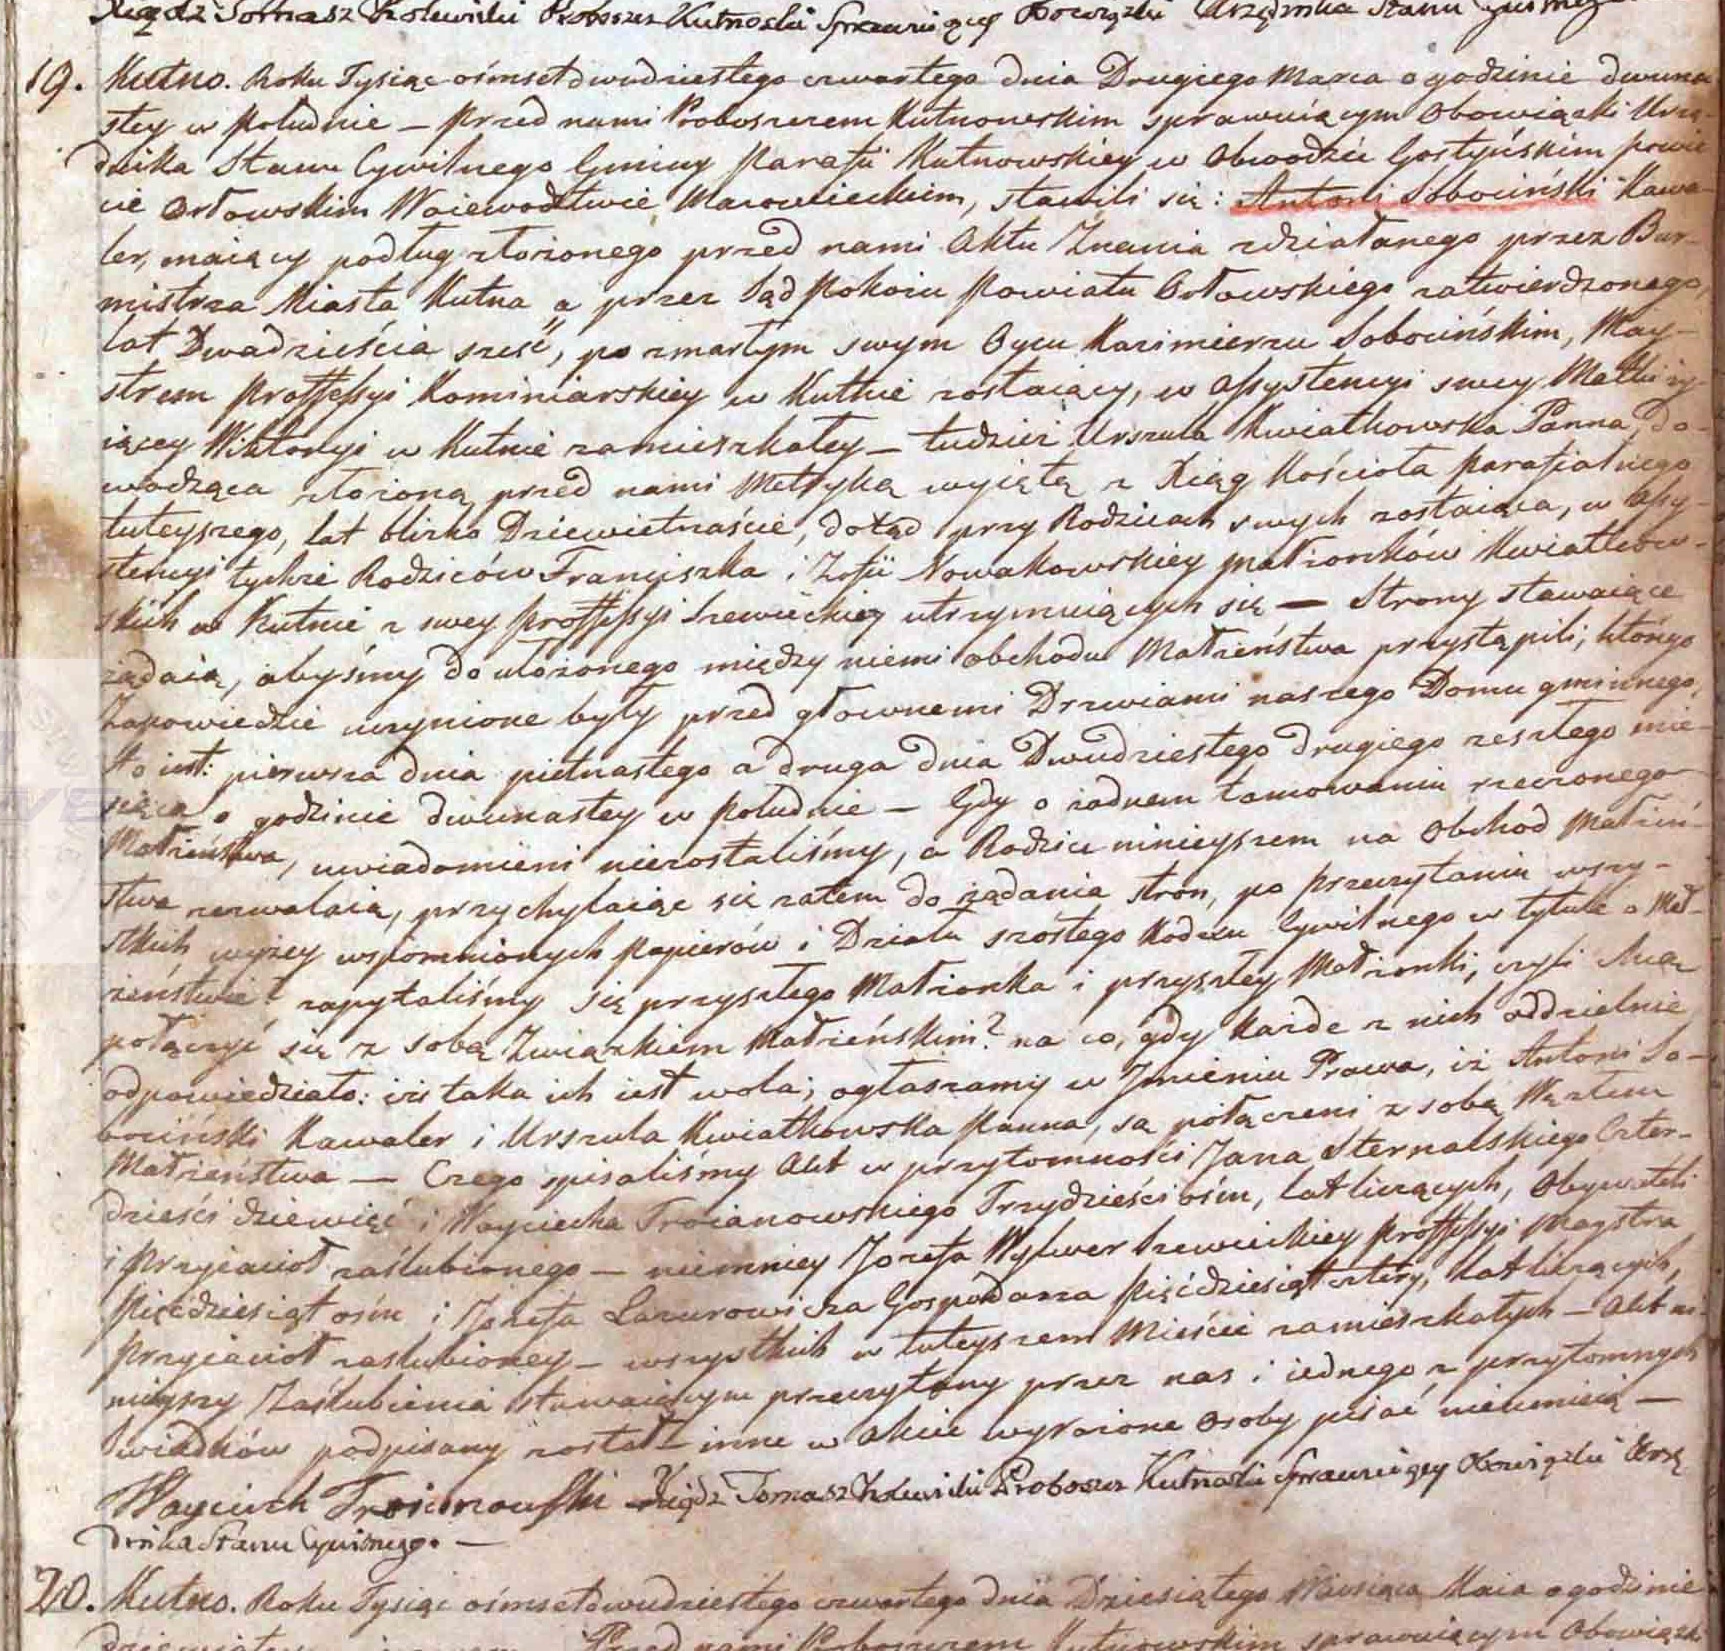 Xiądz Tomasz Proboszcz Kutnoski Sprawuiący Obowiązki Urzędnika Stanu Cywilnego
19. Kutno. Roku Tysiąc ośmset dwudziestego czwartego dnia Drugiego Marca o godzinie dwuna-
stey w południe – przed nami Proboszczem Kutnowskim sprawuiącym Obowiązki Urzę-
dnika Stanu Cywilnego Gminy Parafii Kutnowskiey w Obwodzie Gostyńskim powie-
cie Orłowskim Woiewodztwie Mazowieckim, stawili się: Antoni Sobociński Kawa-
ler, maiący podług złożonego przed nami Aktu Znania zdziałanego przez Bur-
mistrza Miasta Kutna a przez Sąd Pokoiu Powiatu Orłowskiego zatwierdzonego,
lat Dwadzieścia sześć, po zmarłym swym Oycu Kazimierzu Sobocińskim, May-
strem Proffessyi Kominiarskiey w Kutnie zostaiący, w Assystencyi swey Matki ży-
iącey Wiktoryi w Kutnie zamieszkałey – tudzież Urszula Kwiatkowska Panna, do-
wodząca złożoną przed nami Metryką wyiętą z Xiąg Kościoła Parafialnego
tuteyszego, lat blizko Dziewietnaście, dotąd przy Rodzicach swych zostaiąca, w Assy-
stencyi tychże Rodziców Franciszka i Zofii Nowakowskiey małżonków Kwiatkow-
skich w Kutnie z swey proffessyi Szewieckiey utrzymuiących się – Strony stawaiące
żądaią, abyśmy do ułożonego między niemi obchodu Małżeństwa przystąpili, którego
Zapowiedzie uczynione były przed głownemi Drzwiami naszego Domu gminnego,
to iest: pierwsza dnia piętnastego a druga dnia Dwudziestego drugiego zeszłego mie-
siąca o godzinie dwunastey w południe – Gdy o żadnem tamowaniu rzeczonego
Małżeństwa, uwiadomieni niezostaliśmy, a Rodzice ninieyszem na Obchod Małżeń-
stwa zezwalaią, przychylaiąc się zatem do żądania stron, po przeczytaniu wszy-
stkich wyżey wspomnionych papierów i Działu szóstego Kodexu Cywilnego w tytule o Mał-
żeństwie, zapytaliśmy się przyszłego Małżonka i przyszłey Małżonki, czyli chcą
połączyć się z sobą Związkiem Małżeńskim? na co, gdy każde z nich oddzielnie
odpowiedziało: iż taka ich iest wola; ogłaszamy w Jmieniu Prawa, iż Antoni So-
bociński Kawaler i Urszula Kwiatkowska Panna, są połączeni z sobą Węzłem
Małżeństwa – Czego spisaliśmy Akt w przytomności Jana Sternalskiego Czter-
dzieści dziewięć i Woyciecha Troianowskiego Trzydzieści ośm, lat liczących, Obywateli
i przyiaciół zaślubionego – niemniey Jozefa Wylwer Szewieckiey proffessyi Maystra
Pięćdziesiąt ośm i Jozefa Lazurowicza Gospodarza Pięćdziesiąt cztery, lat liczących,
przyiaciół zaślubioney – wszystkich w tuteyszem Mieście zamieszkałych – Akt ni-
nieyszy Zaślubienia stawaiącym przeczytany przez nas i iednego z przytomnych
Swiadków podpisany został – inne w akcie wyrażone osoby pisać nieumieią –
Woyciech Troianowski Xiądz Tomasz Proboszcz Kutnoski Sprawuiący Obowiązki Urzę
dnika Stanu Cywilnego. –
20. Kutno. Roku Tysiąc ośmset dwudziestego czwartego dnia Dziesiątego Miesiąca Maia o godzinie
Przed nami Proboszczem Kutnowskim sprawuiącym Obowiązki